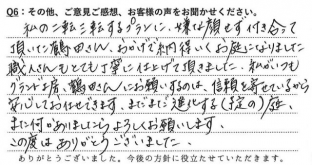 Q6：その他、ご意見ご感想、お客様の声をお聞かせください。
私の二転三転するプランに、嫌な顔せず付き合って
頂いた鶴田さん、おかげで納得いくお庭になりました
職人さんもとても丁寧に仕上げて頂きました。私がいつも
グランド工房、鶴田さんにお願いするのは、信頼を寄せているから
安心してお任せできます。まだまだ進化する(予定の)庭、
また何かありましたらよろしくお願いします。
この度はありがとうございました。
ありがとうございました。今後の方針に役立たせていただきます。